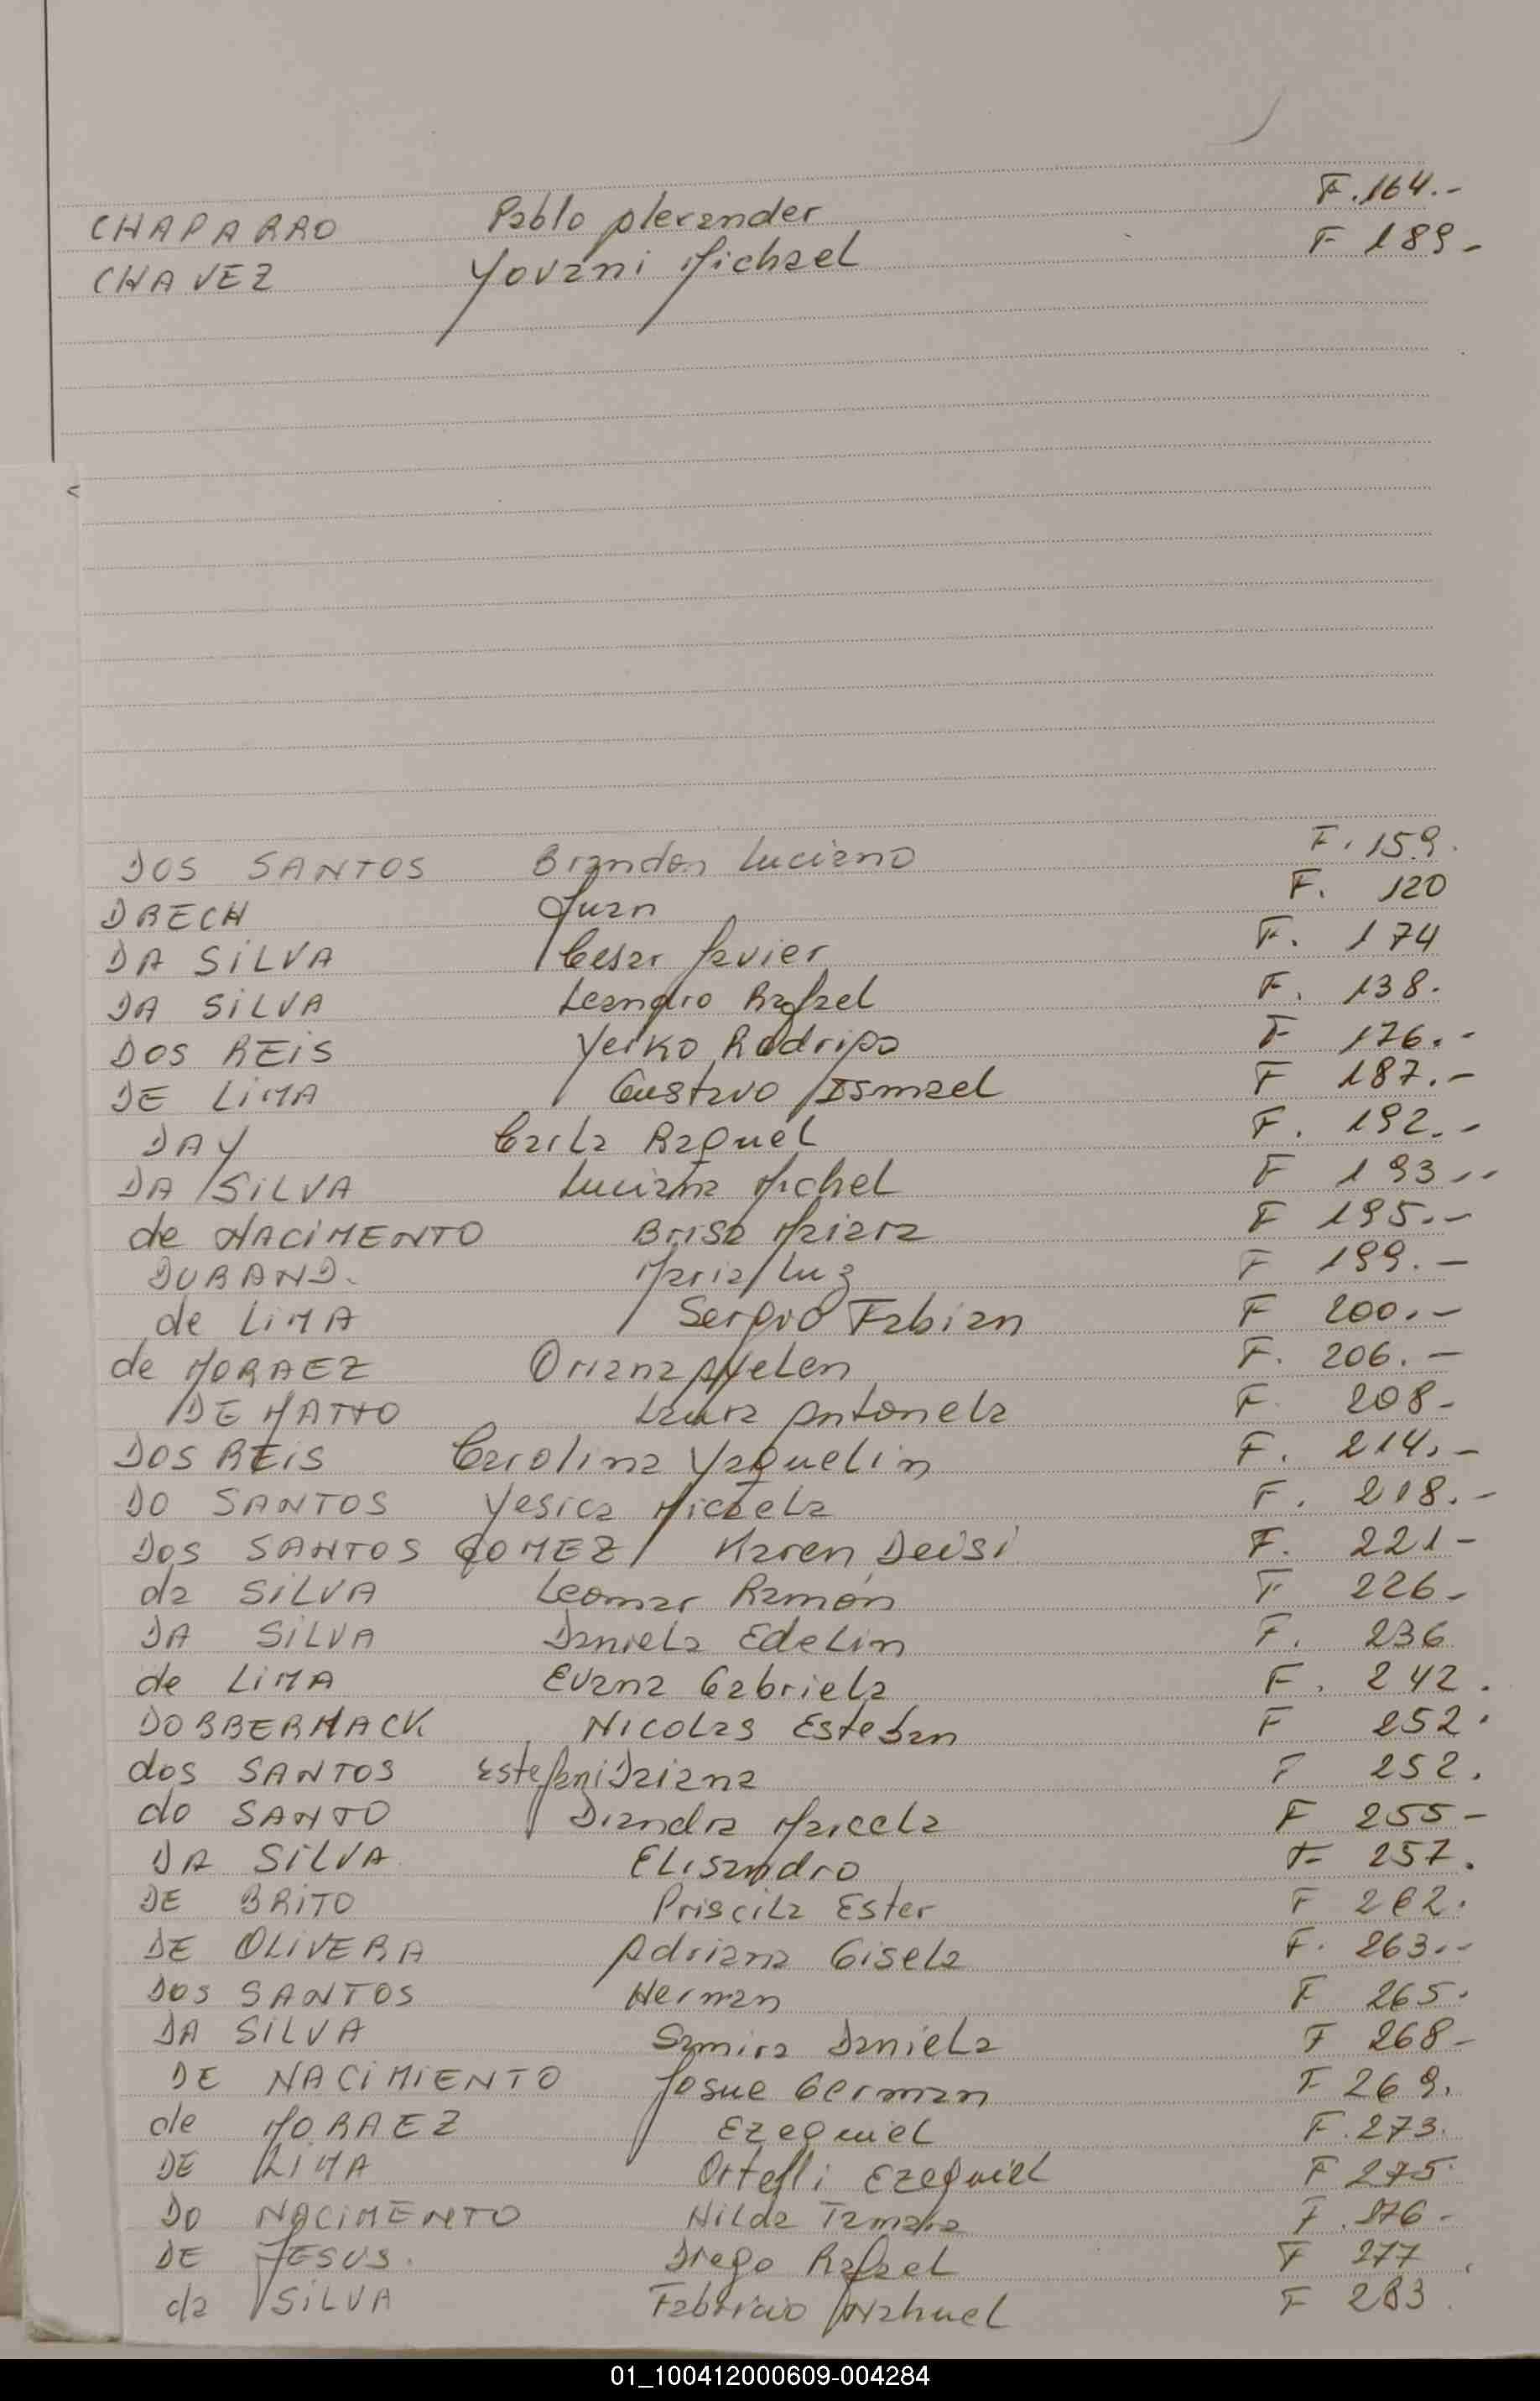 CHAPARRO Pablo Alexander F.164.-
CHAVEZ Yovani Michael F 189-
DOS SANTOS Brandon Luciano F. 159.
DRECH Juan F. 120
DA SiLVA Cesar Javier F. 174
DA SiLVA Leandro Rafael F. 138.
DOS REiS Yeiko Rodrigo F 176.-
DE LiMA Gustavo Ismael F 187.-
DAY Carla Raquel F. 192.-
DA SiLVA Luciana Michel F 193.-
de NACiMENTO Brisa Maiara F 195.-
DURAND. Maria Luz F 199.-
de LiMA Sergio Fabian F 200.-
de MORAEZ Oriana Ayelen F. 206.-
DE MATTO Laura Antonela F. 208-
DOS REiS Carolina Yaquelin F. 214.-
DO SANTOS Yesica Micaela F. 218.-
DOS SANTOS GOMEZ Karen Deisi F. 221-
da SiLVA Leomar Ramón F 226-
DA SiLVA Daniela Edelin F. 236
de LiMA Evana Gabriela F. 242.
DOBBERMACK Nicolas Esteban F 252.
dos SANTOS Estefani Daiana F 252.
do SANTO Diandra Maricela F 255-
DA SiLVA Elisandro F 257.
DE BRiTO Priscila Ester F 262.
DE OLiVERA Adriana Gisela F. 263.-
DOS SANTOS Hernan F 265.
DA SiLVA Samira Daniela F 268-
DE NACiMiENTO Josue German F 269.
de MORAEZ Ezequiel F.273.
DE LiMA Ezequiel F 275
DO NACiMENTO Hilda Tamara F. 276-
DE JESUS. Diego Rafael F 277.
da SiLVA Fabricio Nahuel F 283.
01_100412000609-004284